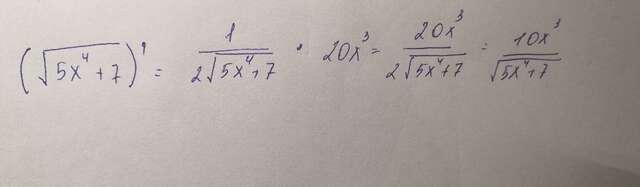 (√(5x⁴+7))' = 1/(2√(5x⁴+7)) · 20x³ = 20x³/(2√(5x⁴+7)) = 10x³/√(5x⁴+7)